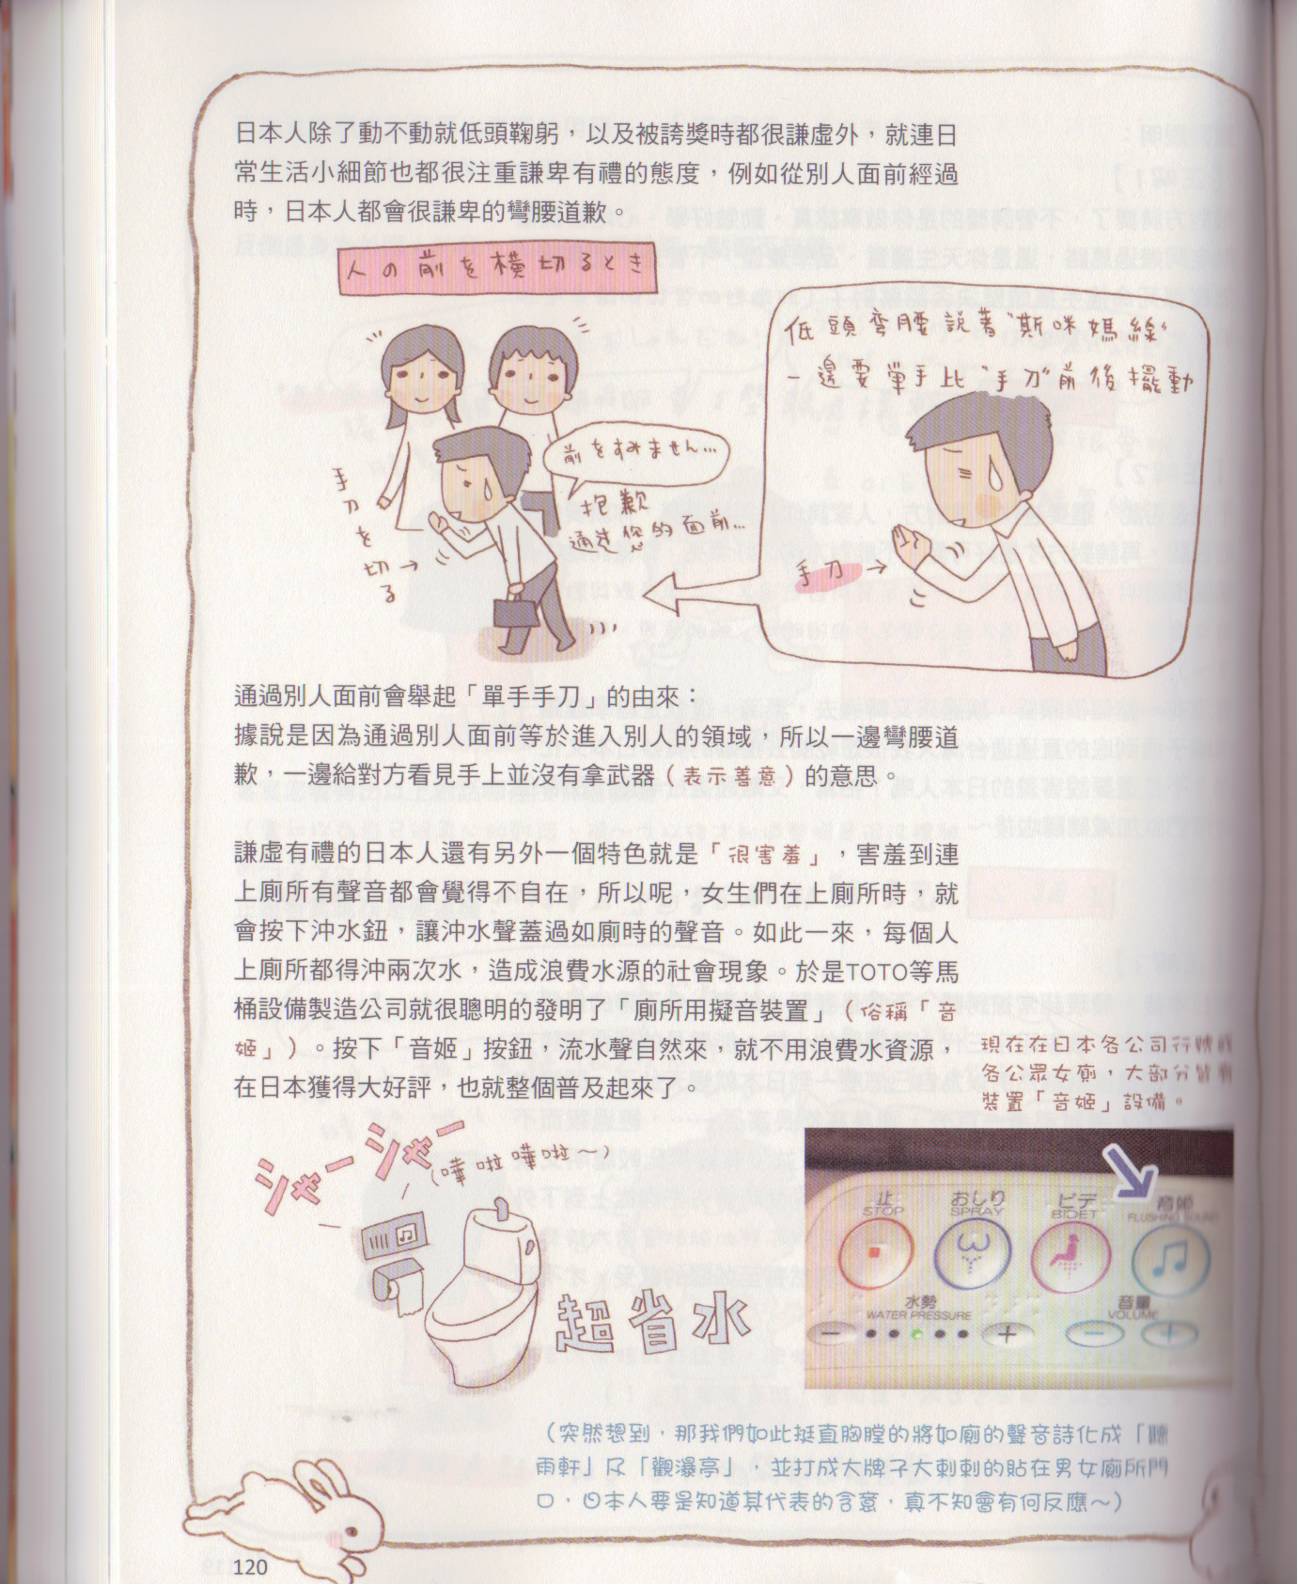 日本人除了動不動就低頭鞠躬，以及被誇獎時都很謙虛外，就連日
常生活小細節也都很注重謙卑有禮的態度，例如從別人面前經過
時，日本人都會很謙卑的彎腰道歉。
人の前を横切るとき
低頭彎腰說著"斯咪媽線"
一邊要單手比"手刀"前後擺動
前をすみません…
抱歉
通過您的面前…
手刀を切る→
手刀→
通過別人面前會舉起「單手手刀」的由來：
據說是因為通過別人面前等於進入別人的領域，所以一邊彎腰道
歉，一邊給對方看見手上並沒有拿武器（表示善意）的意思。
謙虛有禮的日本人還有另外一個特色就是「很害羞」，害羞到連
上廁所有聲音都會覺得不自在，所以呢，女生們在上廁所時，就
會按下沖水鈕，讓沖水聲蓋過如廁時的聲音。如此一來，每個人
上廁所都得沖兩次水，造成浪費水源的社會現象。於是TOTO等馬
桶設備製造公司就很聰明的發明了「廁所用擬音裝置」（俗稱「音
姬」）。按下「音姬」按鈕，流水聲自然來，就不用浪費水資源，
在日本獲得大好評，也就整個普及起來了。
現在在日本各公司行號或
各公眾女廁，大部分皆有
裝置「音姬」設備。
シャーシャー
（嘩啦嘩啦～）
超省水
止 おしり ビデ 音姫
STOP SPRAY BIDET FLUSHING SOUND
水勢 音量
WATER PRESSURE VOLUME
− + − +
（突然想到，那我們如此挺直胸膛的將如廁的聲音詩化成「聽
雨軒」及「觀瀑亭」，並打成大牌子大剌剌的貼在男女廁所門
口，日本人要是知道其代表的含意，真不知會有何反應～）
120